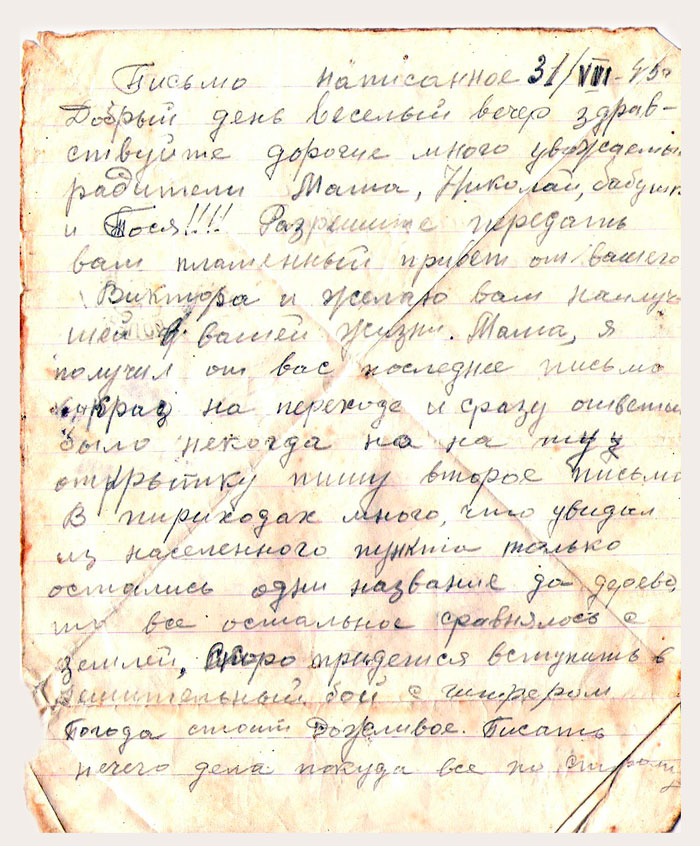 Письмо написанное 31/VIII-43г
Добрый день веселый вечер здрав-
ствуйте дорогие много уважаемы
радители Мама, Николай, бабушк
и Тося!!!! Разрешите передать
вам пламенный привет от вашего
Виктора и желаю вам наилуч
шей в вашей жизни. Мама, я
получил от вас последнее письмо
раз на переходе и сразу ответи
было некогда но на ту
открытку пишу второе письмо
В пириходах много, что увидал
из населенного пункта только
остались одни название да дерево,
то все остальное сравнялось с
землей, скоро придется вступить в
решительный бой с гитлером
Погода стоит Дожливое. Писать
нечего дела покуда все по старому